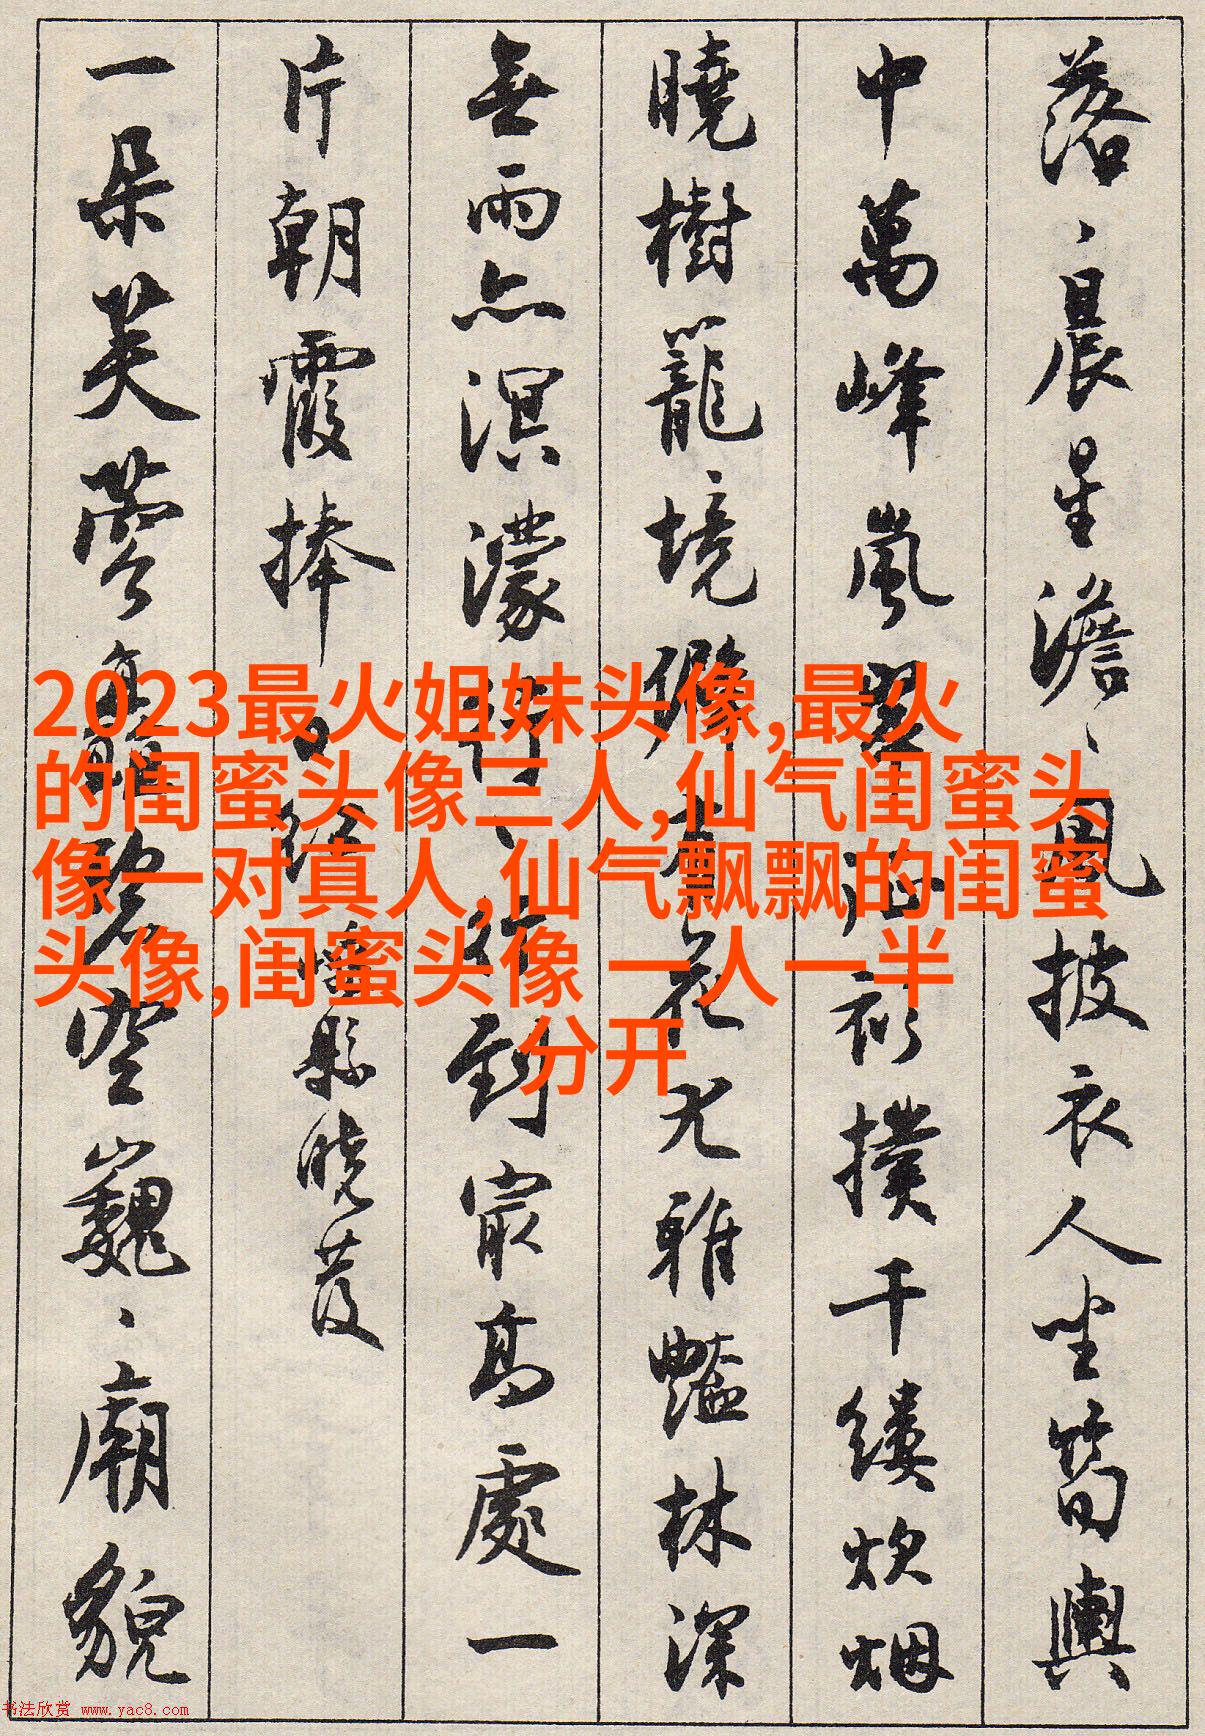 落、晨星澹、風披衣人坐筍輿
中萬峰嵐翠 衫撲千縷炊烟
曉樹籠境僻 花尤雅豔林深
無雨亦溟濛 行到最高處一
片朝霞捧日 嵊縣曉發
一朵芙蓉 碧空巍、廟貌
2023最火姐妹头像,最火
的闺蜜头像三人,仙气闺蜜头
像一对真人,仙气飘飘的闺蜜
头像,闺蜜头像 一人一半
分开
书法欣赏 www.yac8.com